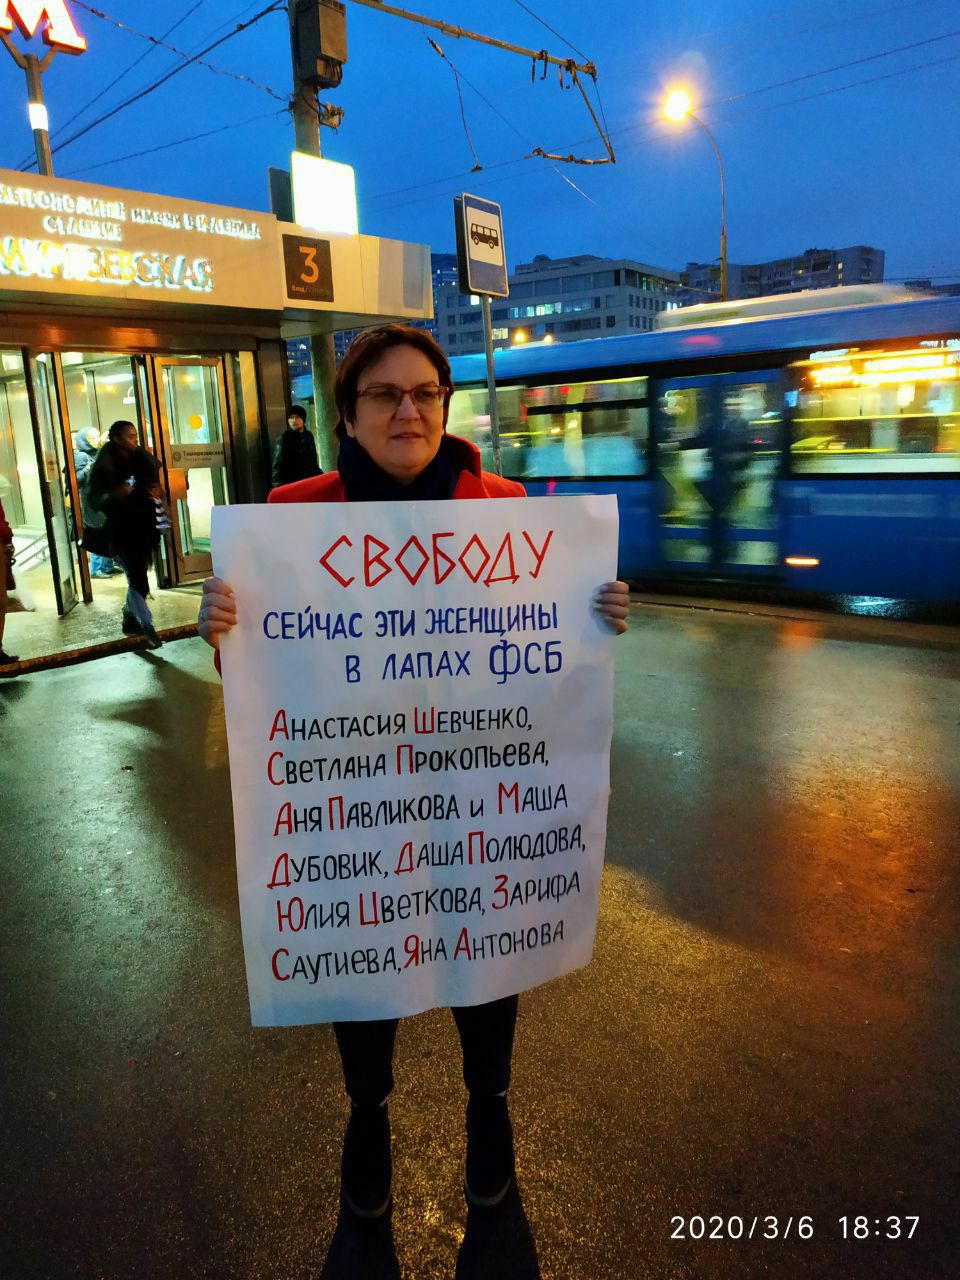 М
МЕТРОПОЛИТЕН ИМЕНИ В.И.ЛЕНИНА
СТАНЦИЯ
МИРЯЗЕВСКАЯ
3
Тимирязевская
СВОБОДУ
СЕЙЧАС ЭТИ ЖЕНЩИНЫ
В ЛАПАХ ФСБ
АНАСТАСИЯ ШЕВЧЕНКО,
СВЕТЛАНА ПРОКОПЬЕВА,
АНЯ ПАВЛИКОВА И МАША
ДУБОВИК, ДАША ПОЛЮДОВА,
ЮЛИЯ ЦВЕТКОВА, ЗАРИФА
САУТИЕВА, ЯНА АНТОНОВА
2020/3/6 18:37